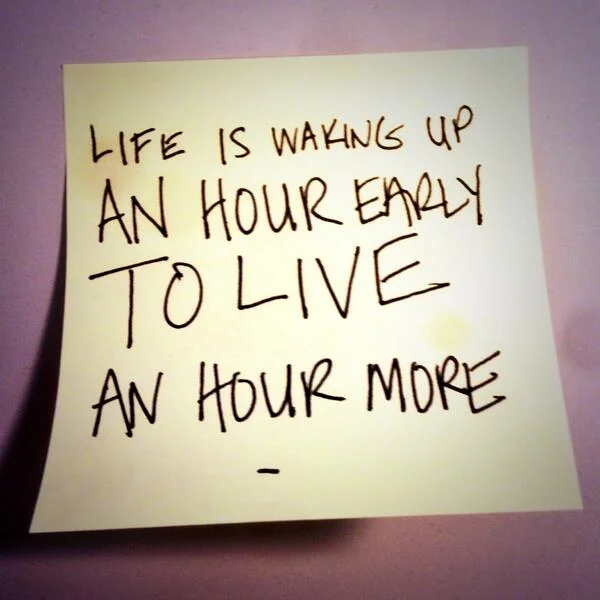 LIFE IS WAKING UP
AN HOUR EARLY
TO LIVE
AN HOUR MORE
-